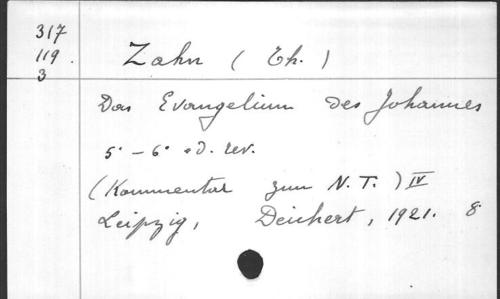 317
119.
3
Zahn (Th.)
Das Evangelium des Johannes
5° - 6° ed. rev.
(Kommentar zum N. T.) IV
Leipzig, Deichert, 1921. 8